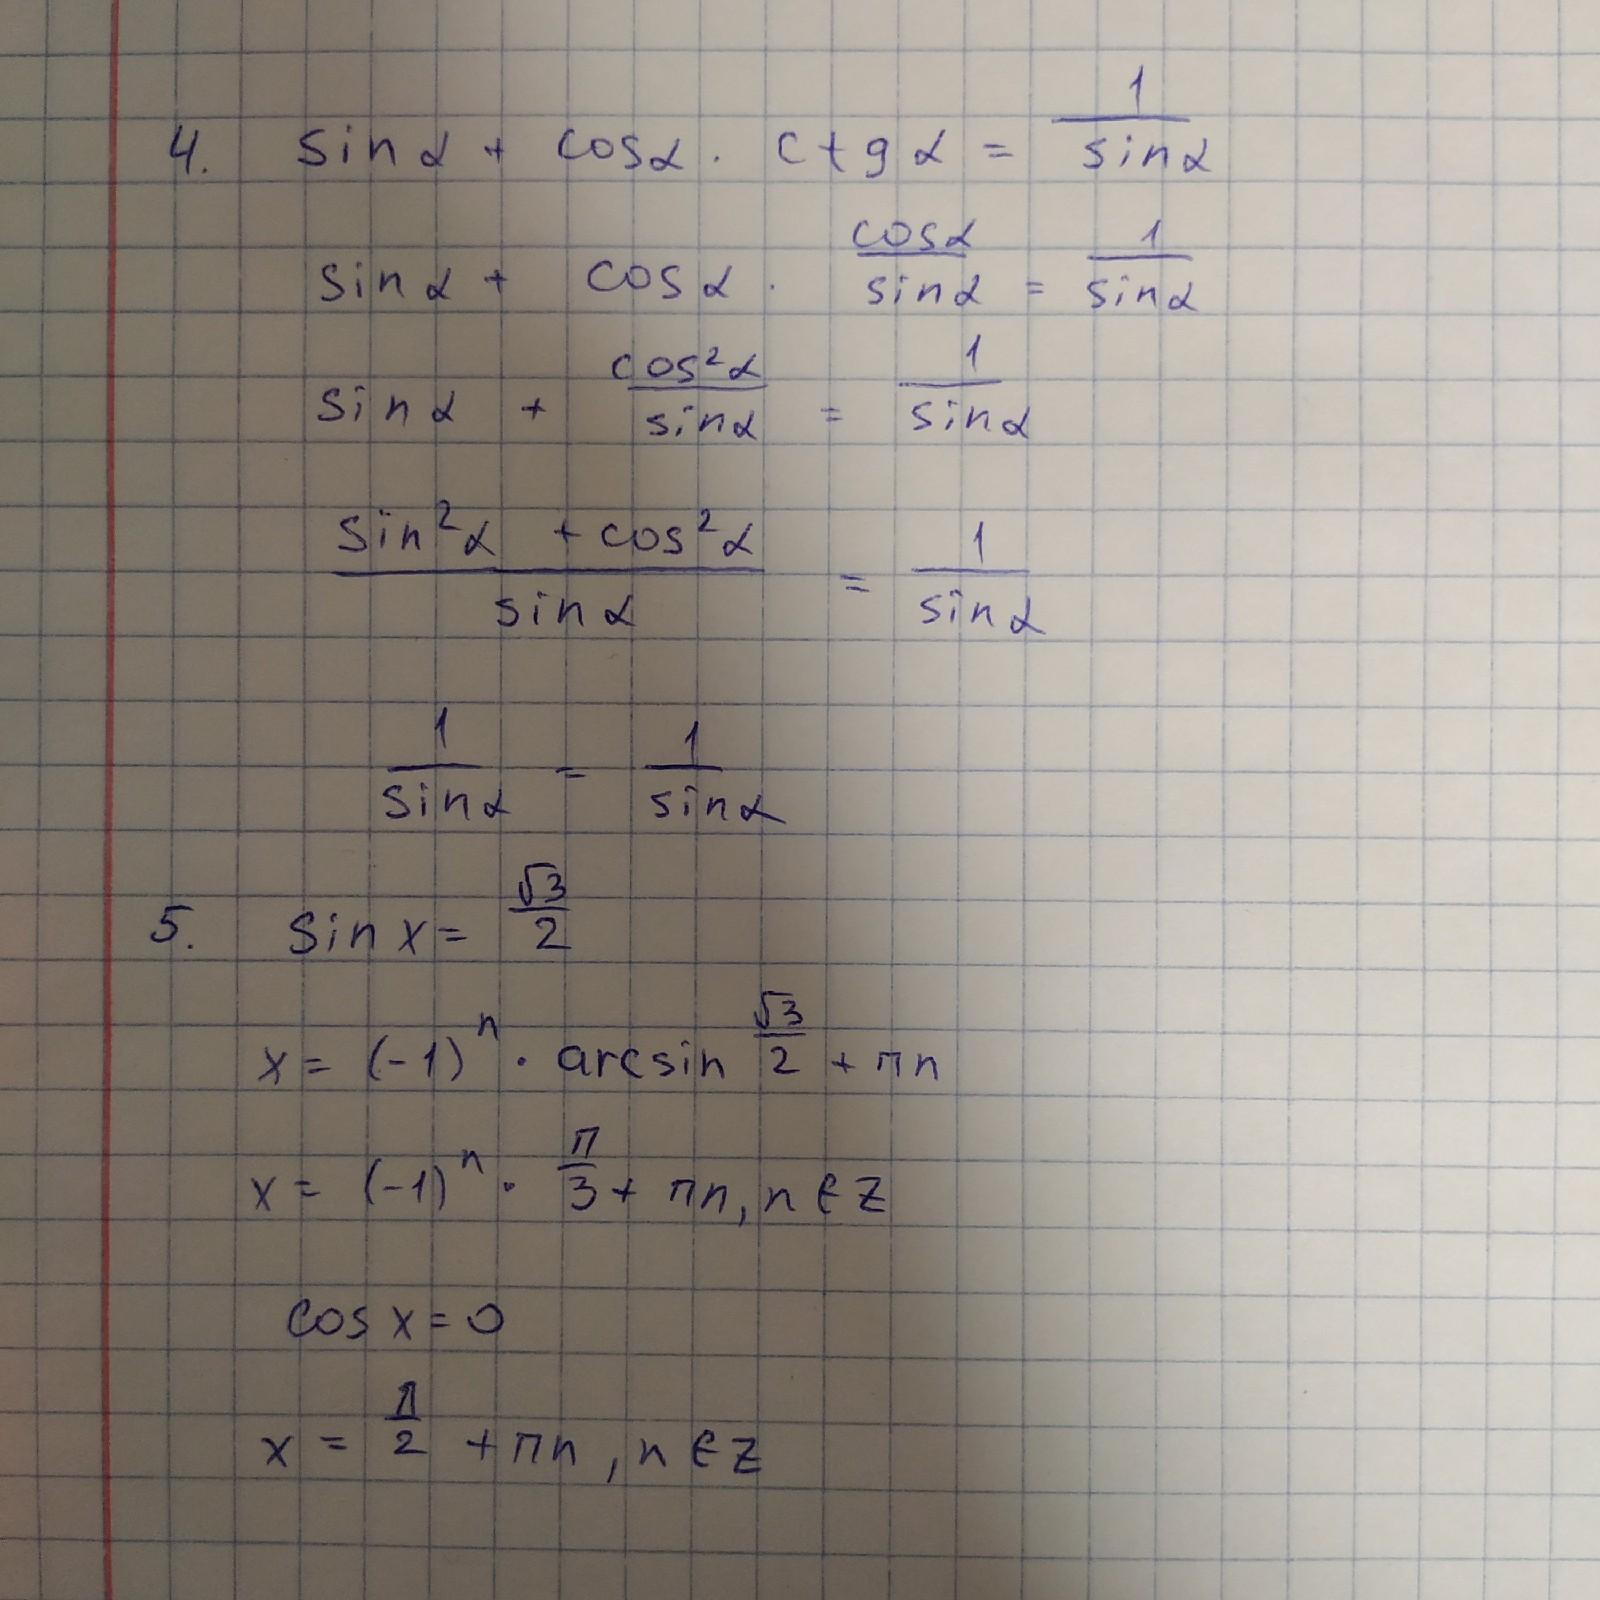 4. sin α + cos α · ctg α = 1/sin α
sin α + cos α · cos α/sin α = 1/sin α
sin α + cos² α/sin α = 1/sin α
(sin² α + cos² α)/sin α = 1/sin α
1/sin α = 1/sin α
5. sin x = √3/2
x = (-1)ⁿ · arcsin √3/2 + πn
x = (-1)ⁿ · π/3 + πn, n ∈ Z
cos x = 0
x = π/2 + πn, n ∈ Z